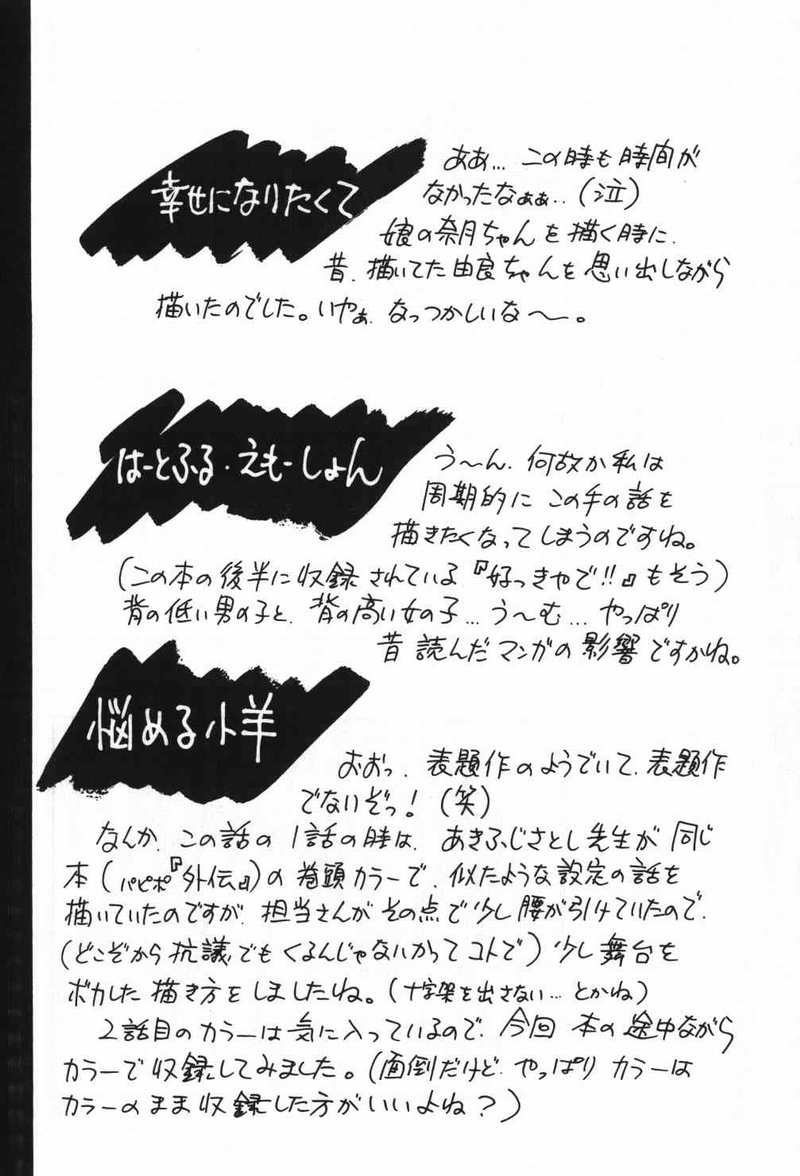 幸せになりたくて
ああ… この時も時間が
なかったなぁぁ‥(泣)
娘の奈月ちゃんを描く時に、
昔、描いてた由良ちゃんを思い出しながら
描いたのでした。いやぁ、なっつかしいな〜。
はーとふる・えもーしょん
う〜ん、何故か私は
周期的に この手の話を
描きたくなってしまうのですね。
(この本の後半に収録されている『好っきゃで!!』もそう)
背の低い男の子と、背の高い女の子…う〜む… やっぱり
昔 読んだマンガの影響ですかね。
悩める小羊
おおっ、表題作のようでいて、表題作
でないぞっ!(笑)
なんか、この話の1話の時は、あきふじさとし先生が同じ
本(パピポ『外伝』)の巻頭カラーで、似たような設定の話を
描いていたのですが、担当さんがその点で少し腰が引けていたので、
(どこぞから抗議でもくるんじゃないかってコトで)少し舞台を
ボカした描き方をしましたね。(十字架を出さない…とかね)
2話目のカラーは気に入っているので、今回 本の途中ながら
カラーで収録してみました。(面倒だけど、やっぱり カラーは
カラーのまま収録した方がいいよね?)